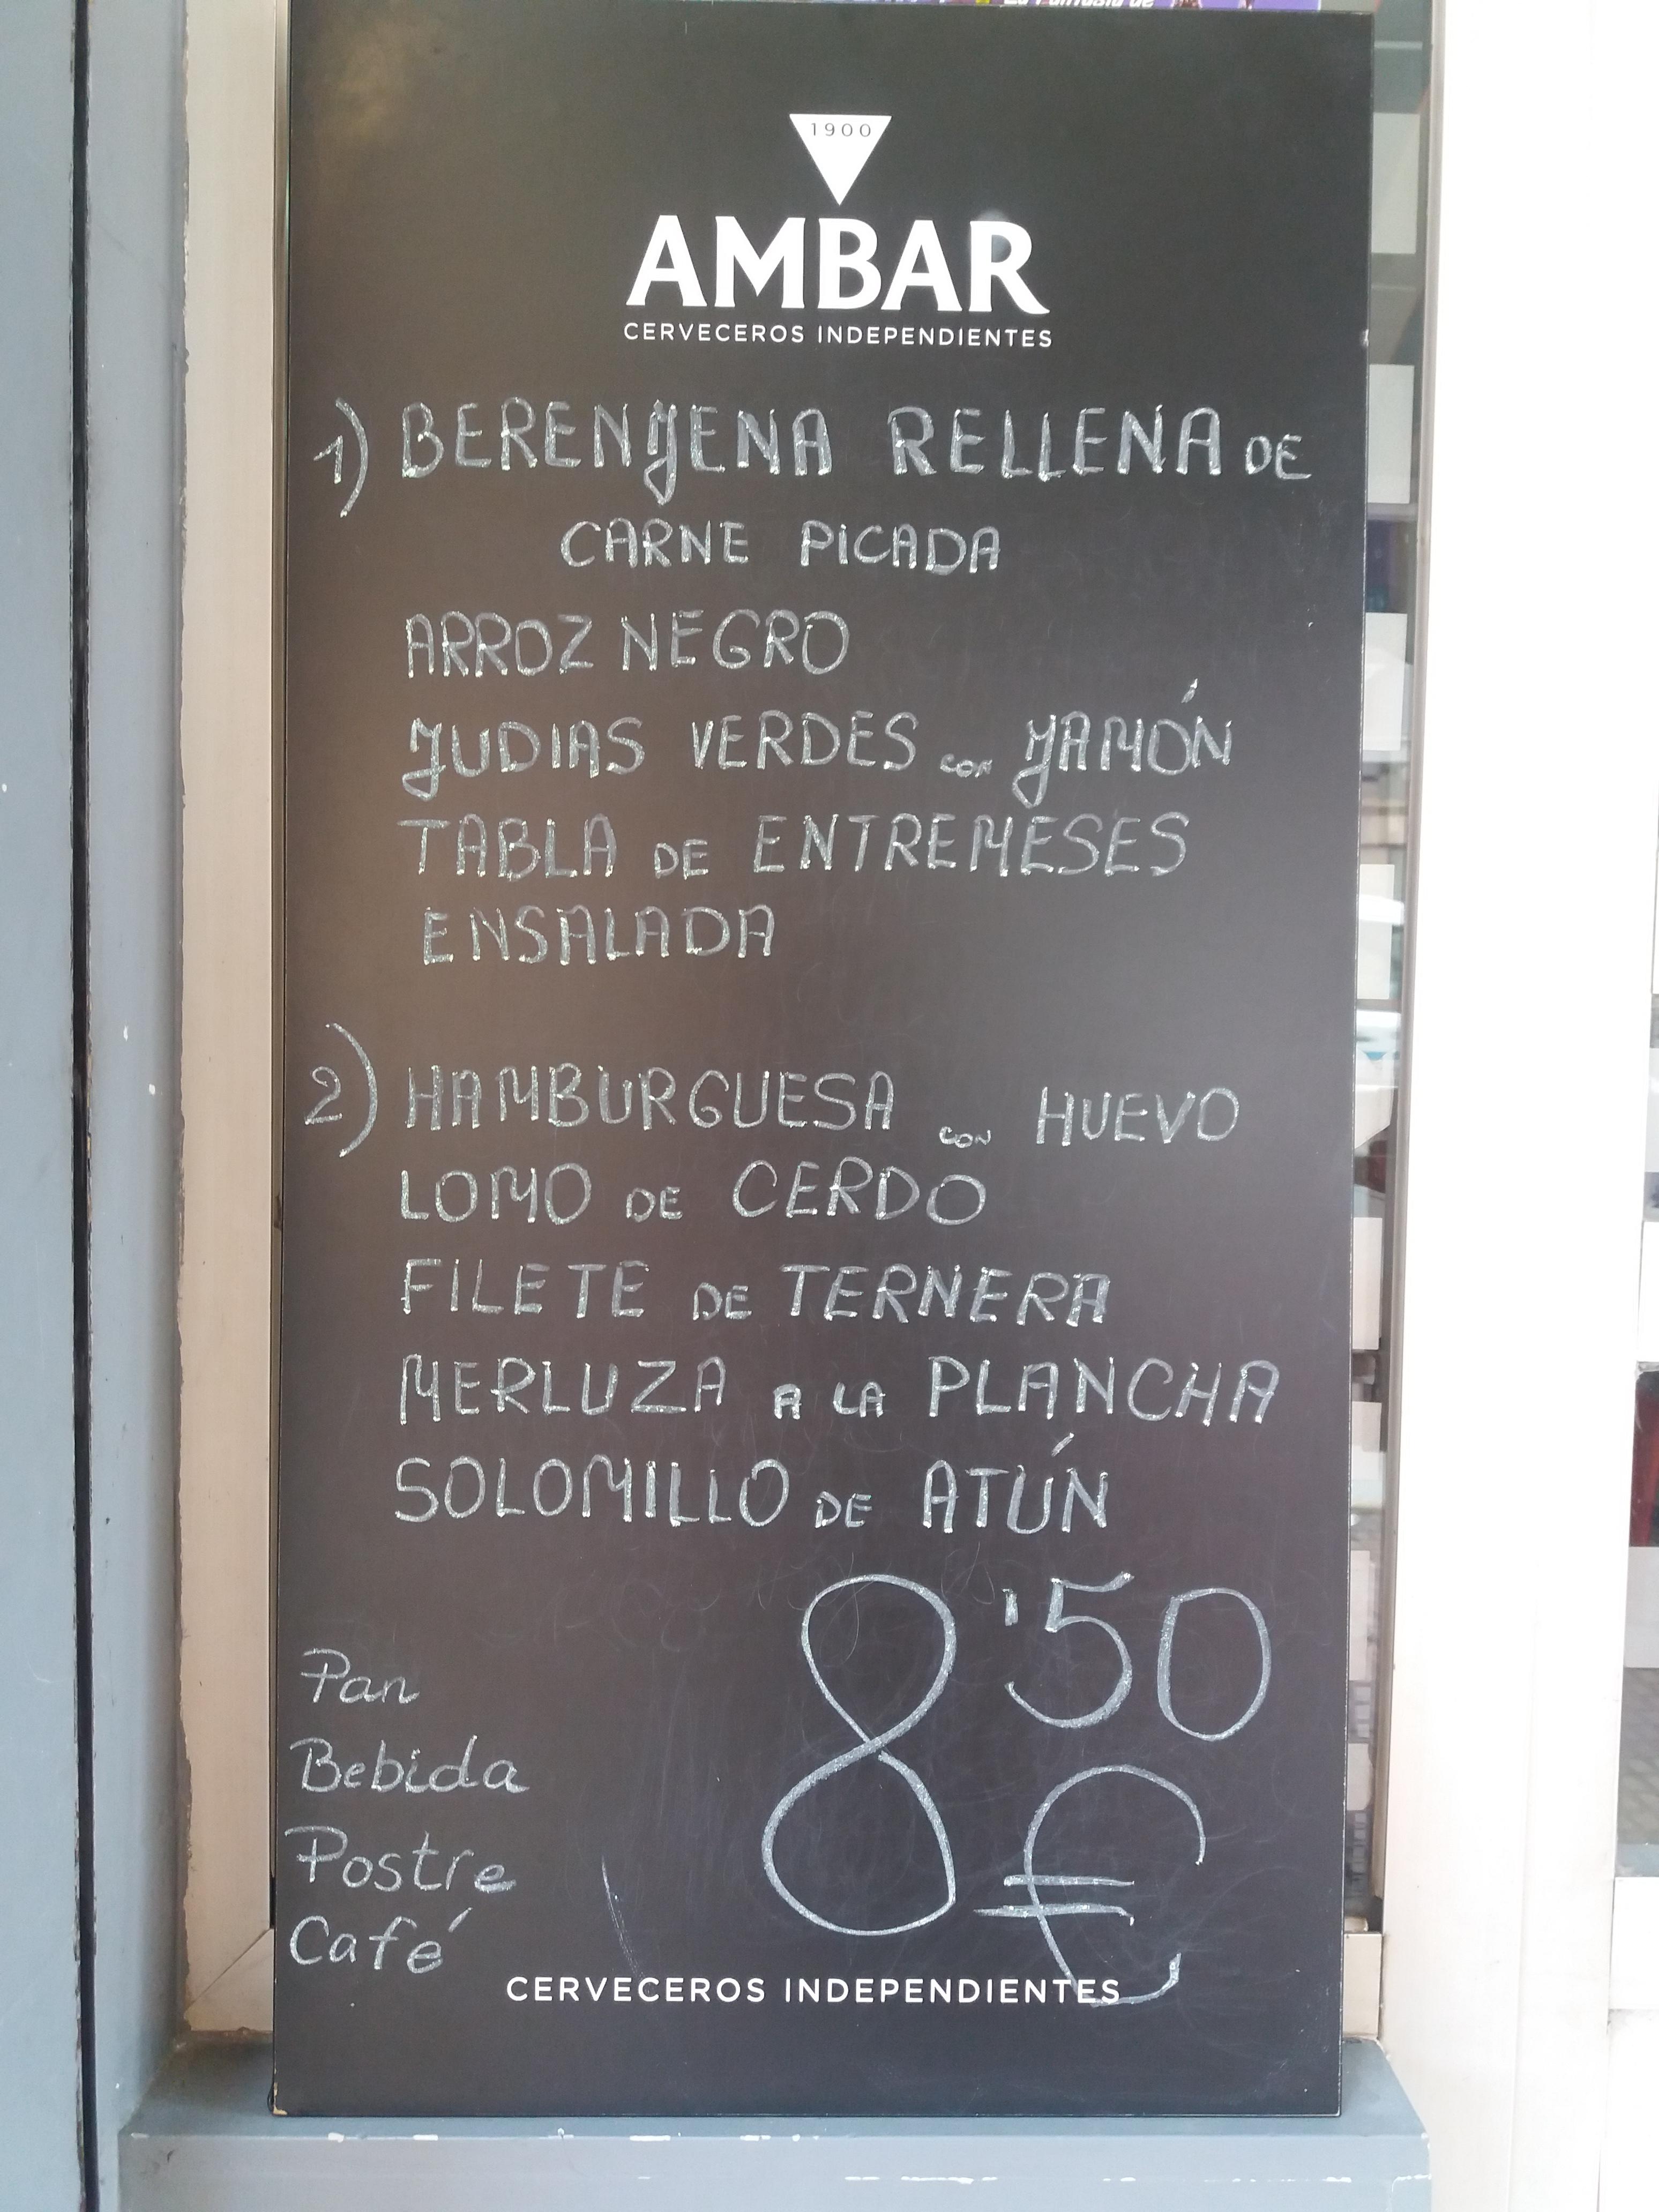 La Fantasía de
1900
AMBAR
CERVECEROS INDEPENDIENTES
1) BERENJENA RELLENA DE
CARNE PICADA
ARROZ NEGRO
JUDIAS VERDES con JAMÓN
TABLA DE ENTREMESES
ENSALADA
2) HAMBURGUESA con HUEVO
LOMO DE CERDO
FILETE DE TERNERA
MERLUZA A LA PLANCHA
SOLOMILLO DE ATÚN
8'50 €
Pan
Bebida
Postre
Café
CERVECEROS INDEPENDIENTES